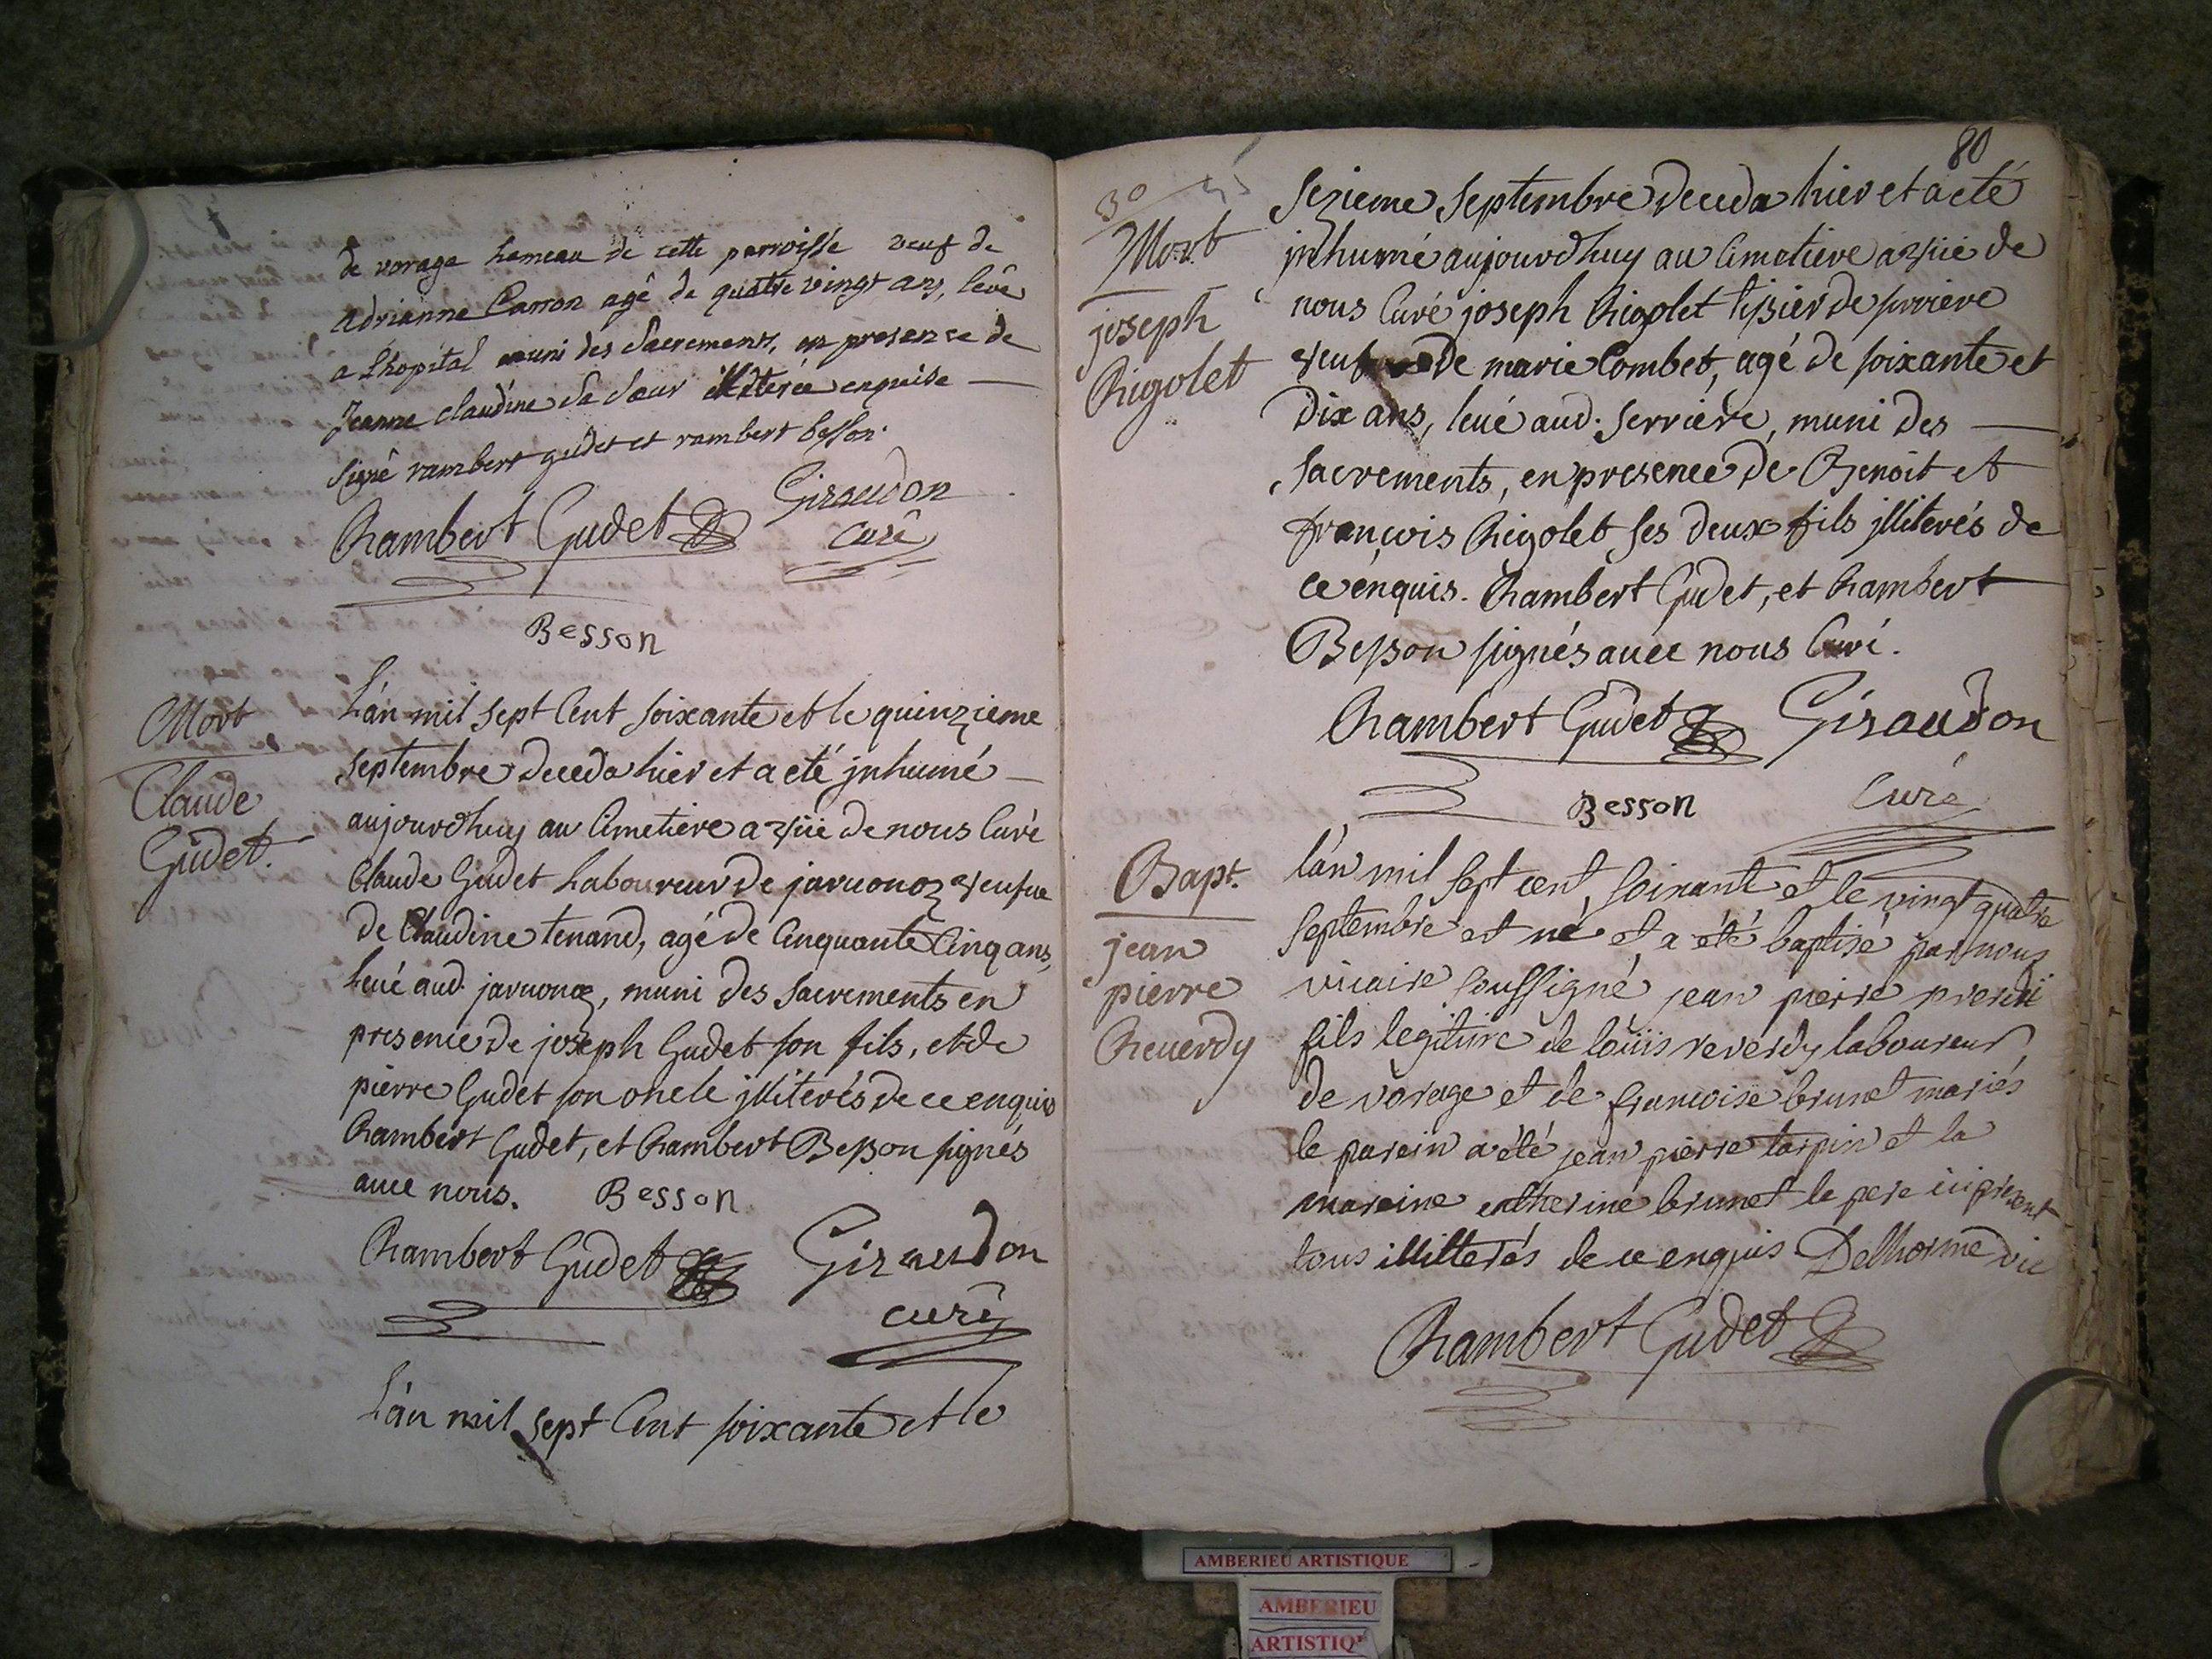 de vorage hameau de cette parroisse veuf de
adrianne Carron agé de quatre vingt ans, levé
a Lhopital muni des Sacremens, en presence de
Jeanne claudine Sa Sœur illiterée enquise
Signé rambert gudet et rambert besson.
Rambert Gudet
Giraudon
curé
Besson
Mort
Claude
Gudet.
L'an mil sept Cent soixante et le quinzieme
septembre deceda hier et a eté jnhumé
aujourdhuy au Cimetiere de nous Curé
Claude Gudet Laboureur de jaruonoz veufue
de Claudine tenand, agé de Cinquante Cinq ans,
leué aud. jaruonoz, muni des Sacrements en
presence de joseph Gudet son fils, et de
pierre Gudet son oncle jlliterés de ce enquis
Rambert Gudet, et Rambert Besson signés
auec nous. Besson
Rambert Gudet
Giraudon
curé
L'an mil sept Cent soixante et le
80
30
Mort
joseph
Rigolet
sezieme Septembre deceda hier et a eté
jnhumé aujourdhuy au Cimetiere de
nous Curé joseph Rigolet tissier de
veuf de marie Combet, agé de soixante et
dix ans, leué aud. Serriere, muni des
sacrements, en presence de Benoit et
françois Rigolet ses deux fils jlliterés de
ce enquis. Rambert Gudet, et Rambert
Besson signés auec nous Curé.
Rambert Gudet
Giraudon
Besson
Curé
Bapt.
jean
pierre
Reuerdy
l'an mil sept cent soixante et le vingt quatre
septembre est né et a été baptisé par nous
vicaire soussigné jean pierre
fils legitime de loüis reverdy laboureur
de vorage et de françoise brunet mariés
le parein a été jean pierre tarpin et la
mareine catherine brunet le pere ici present
tous illitterés de ce enquis Delhorme vic
Rambert Gudet
AMBERIEU ARTISTIQUE
AMBERIEU
ARTISTIQ